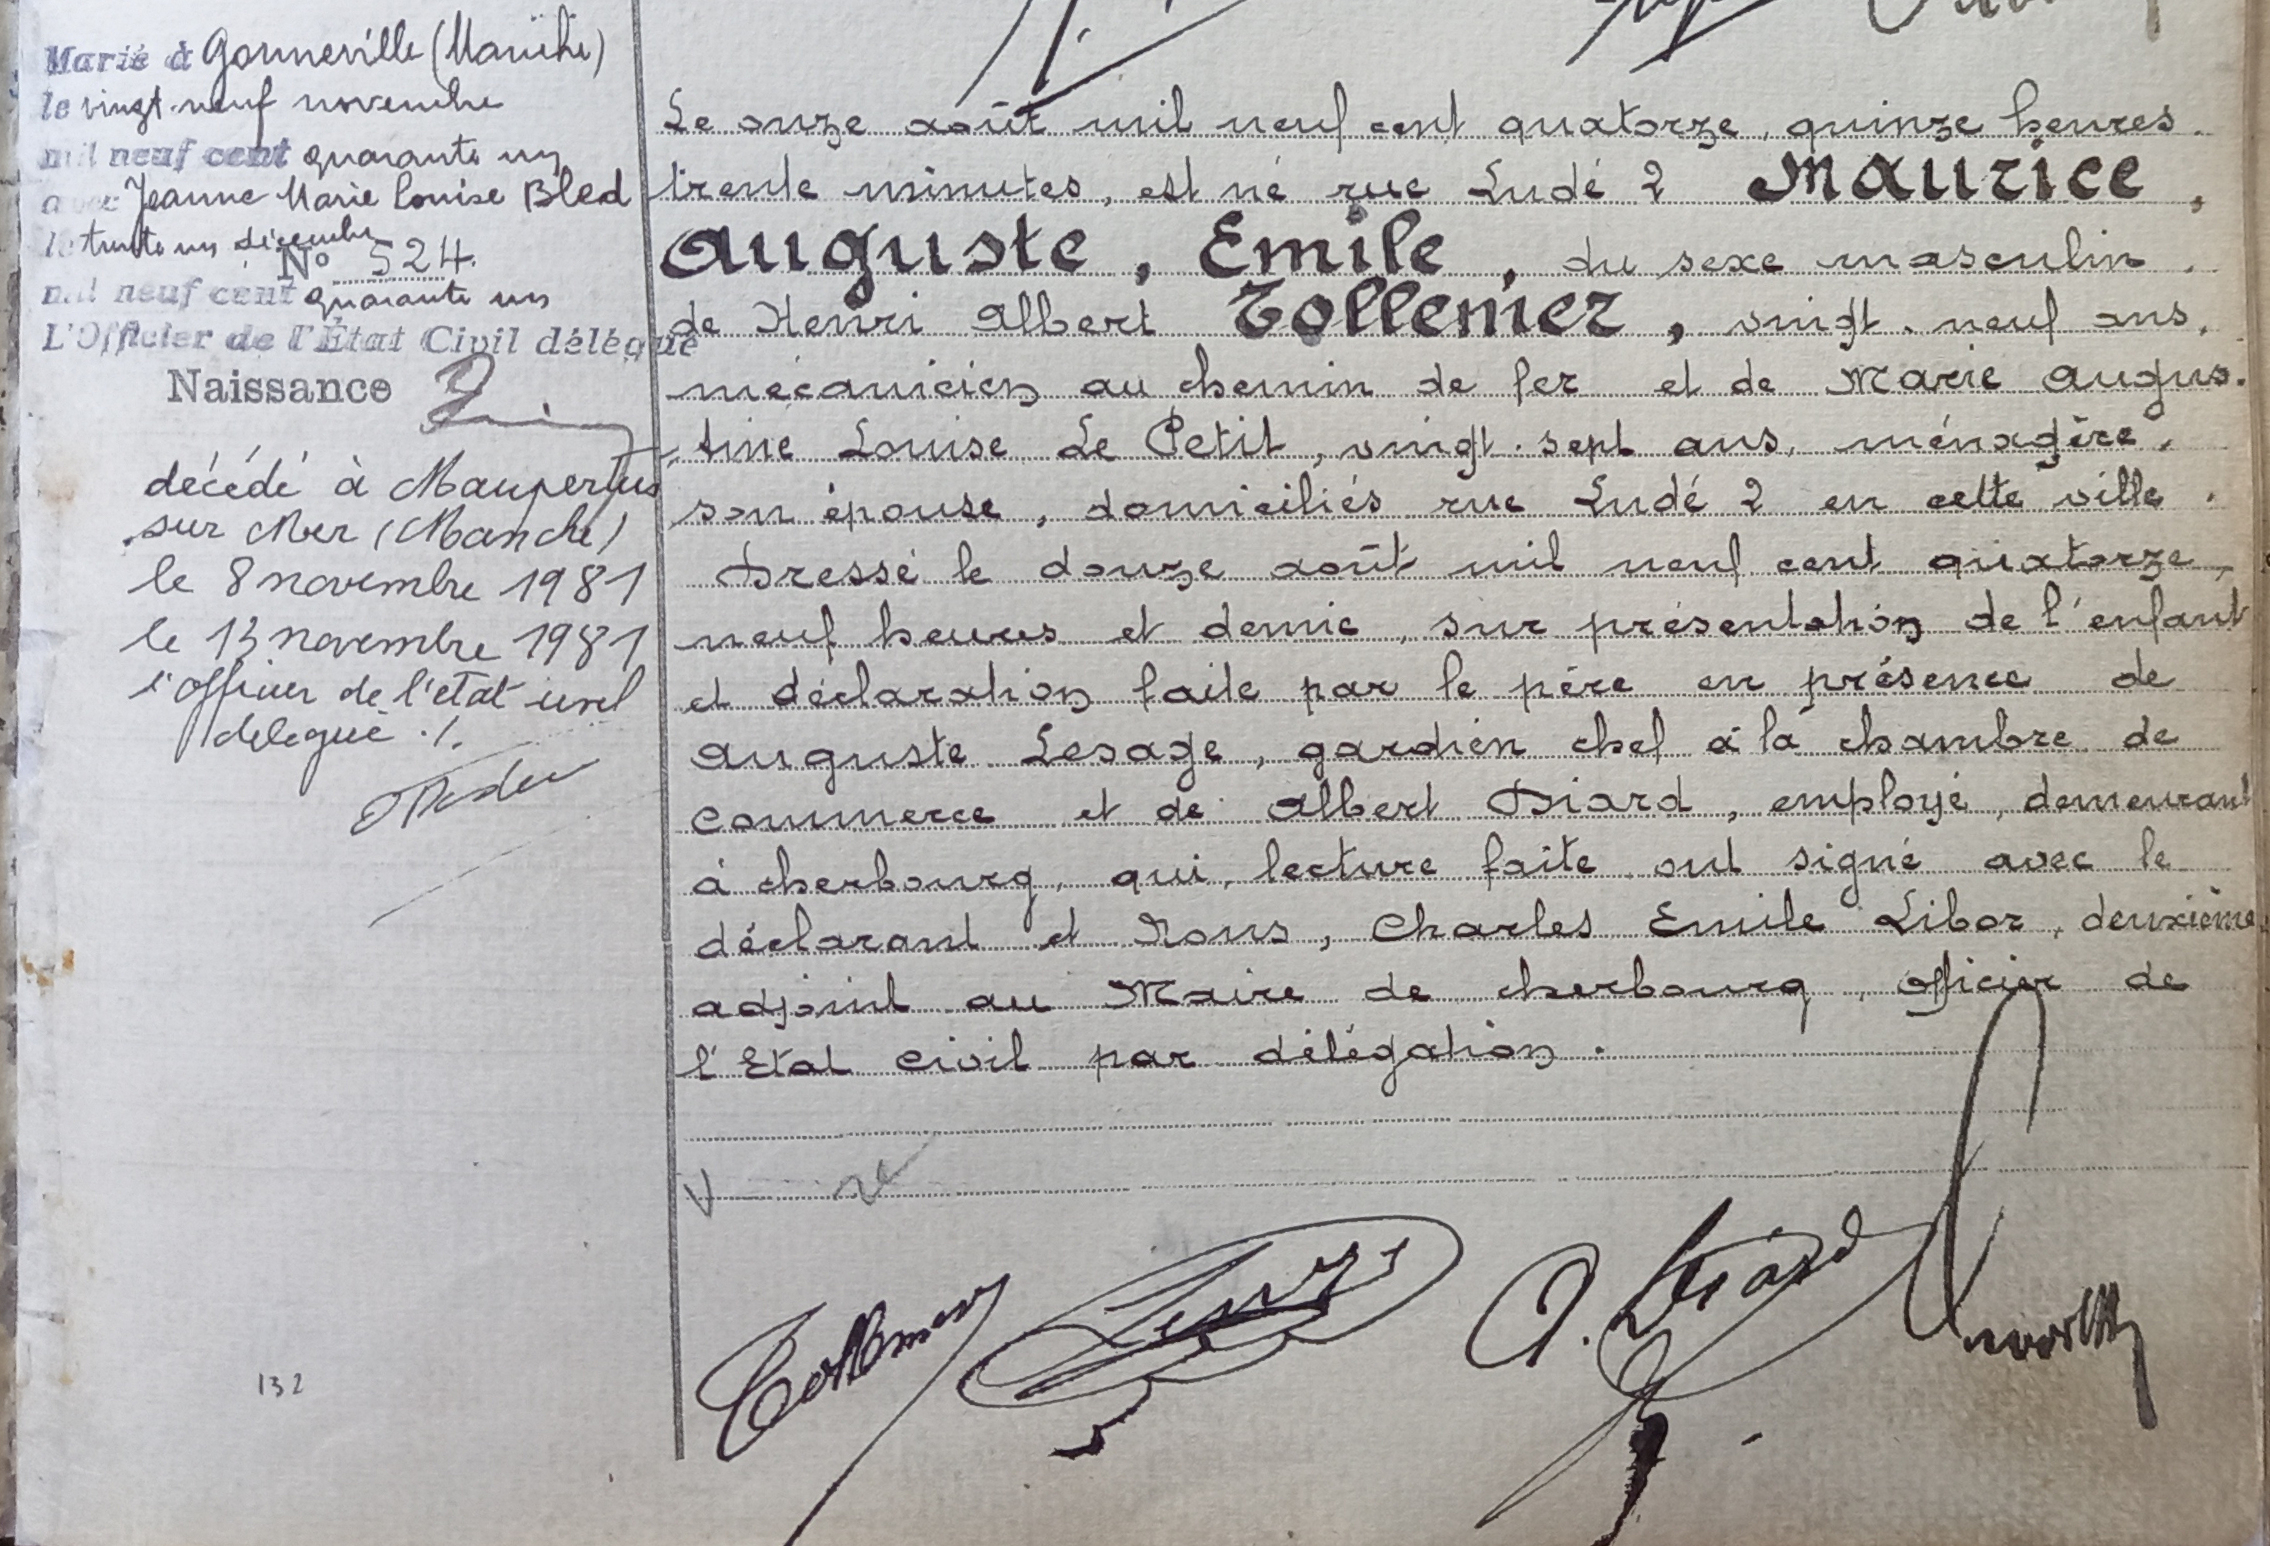 Marié à Gonneville (Manche)
le vingt-neuf novembre
mil neuf cent quarante un
avec Jeanne Marie Louise Bled
le trente un décembre
N° 524.
mil neuf cent quarante un
L'Officier de l'État Civil délégué
Naissance
décédé à Maupertus
sur Mer (Manche)
le 8 novembre 1981
le 13 novembre 1981
l'officier de l'état civil
délégué ./.
132
Le onze août mil neuf cent quatorze, quinze heures
trente minutes, est né rue Ludé 2 Maurice,
Auguste, Emile, du sexe masculin,
de Henri Albert Tollemer, vingt-neuf ans,
mécanicien au chemin de fer et de Marie Augus-
tine Louise Le Petit, vingt-sept ans, ménagère,
son épouse, domiciliés rue Ludé 2 en cette ville.
Dressé le douze août mil neuf cent quatorze,
neuf heures et demie, sur présentation de l'enfant
et déclaration faite par le père en présence de
Auguste Lesage, gardien chef à la chambre de
commerce et de Albert Diard, employé, demeurant
à Cherbourg, qui, lecture faite ont signé avec le
déclarant et Nous, Charles Emile Libor, deuxième
adjoint au Maire de Cherbourg, officier de
l'Etat civil par délégation.
Tollemer
A. Diard